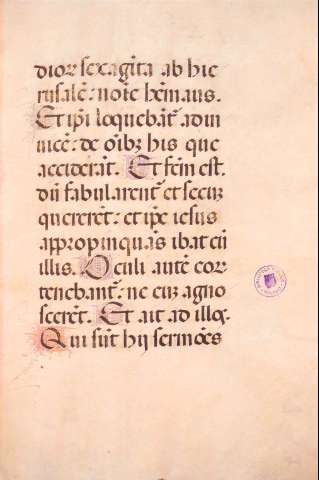 dior sexagīta ab hie
rusalē: noīe hēmaus.
Et ip̄i loquebāt̄ ad in
uicē: de oīb; his que
acciderāt. Et fc̄m est.
dū fabularent̄ et secū
quererēt: et ip̄e iesus
appropinquās ibat cū
illis. Oculi autē eor̄
tenebant̄: ne eū agno
scerēt. Et ait ad illos.
Qui sūt hij sermōes